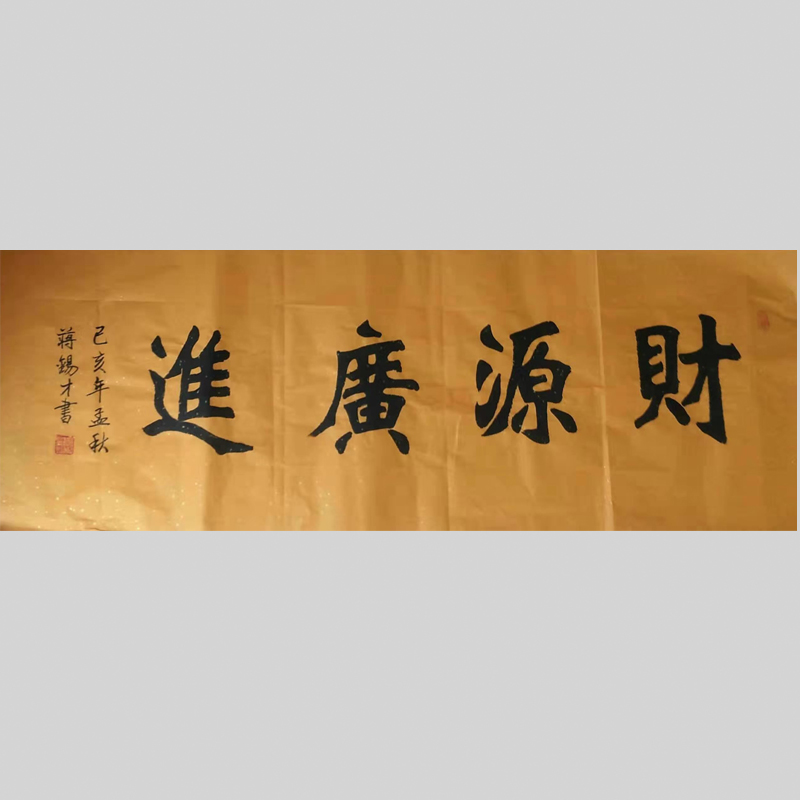 財源廣進
己亥年孟秋
蔣錫才書